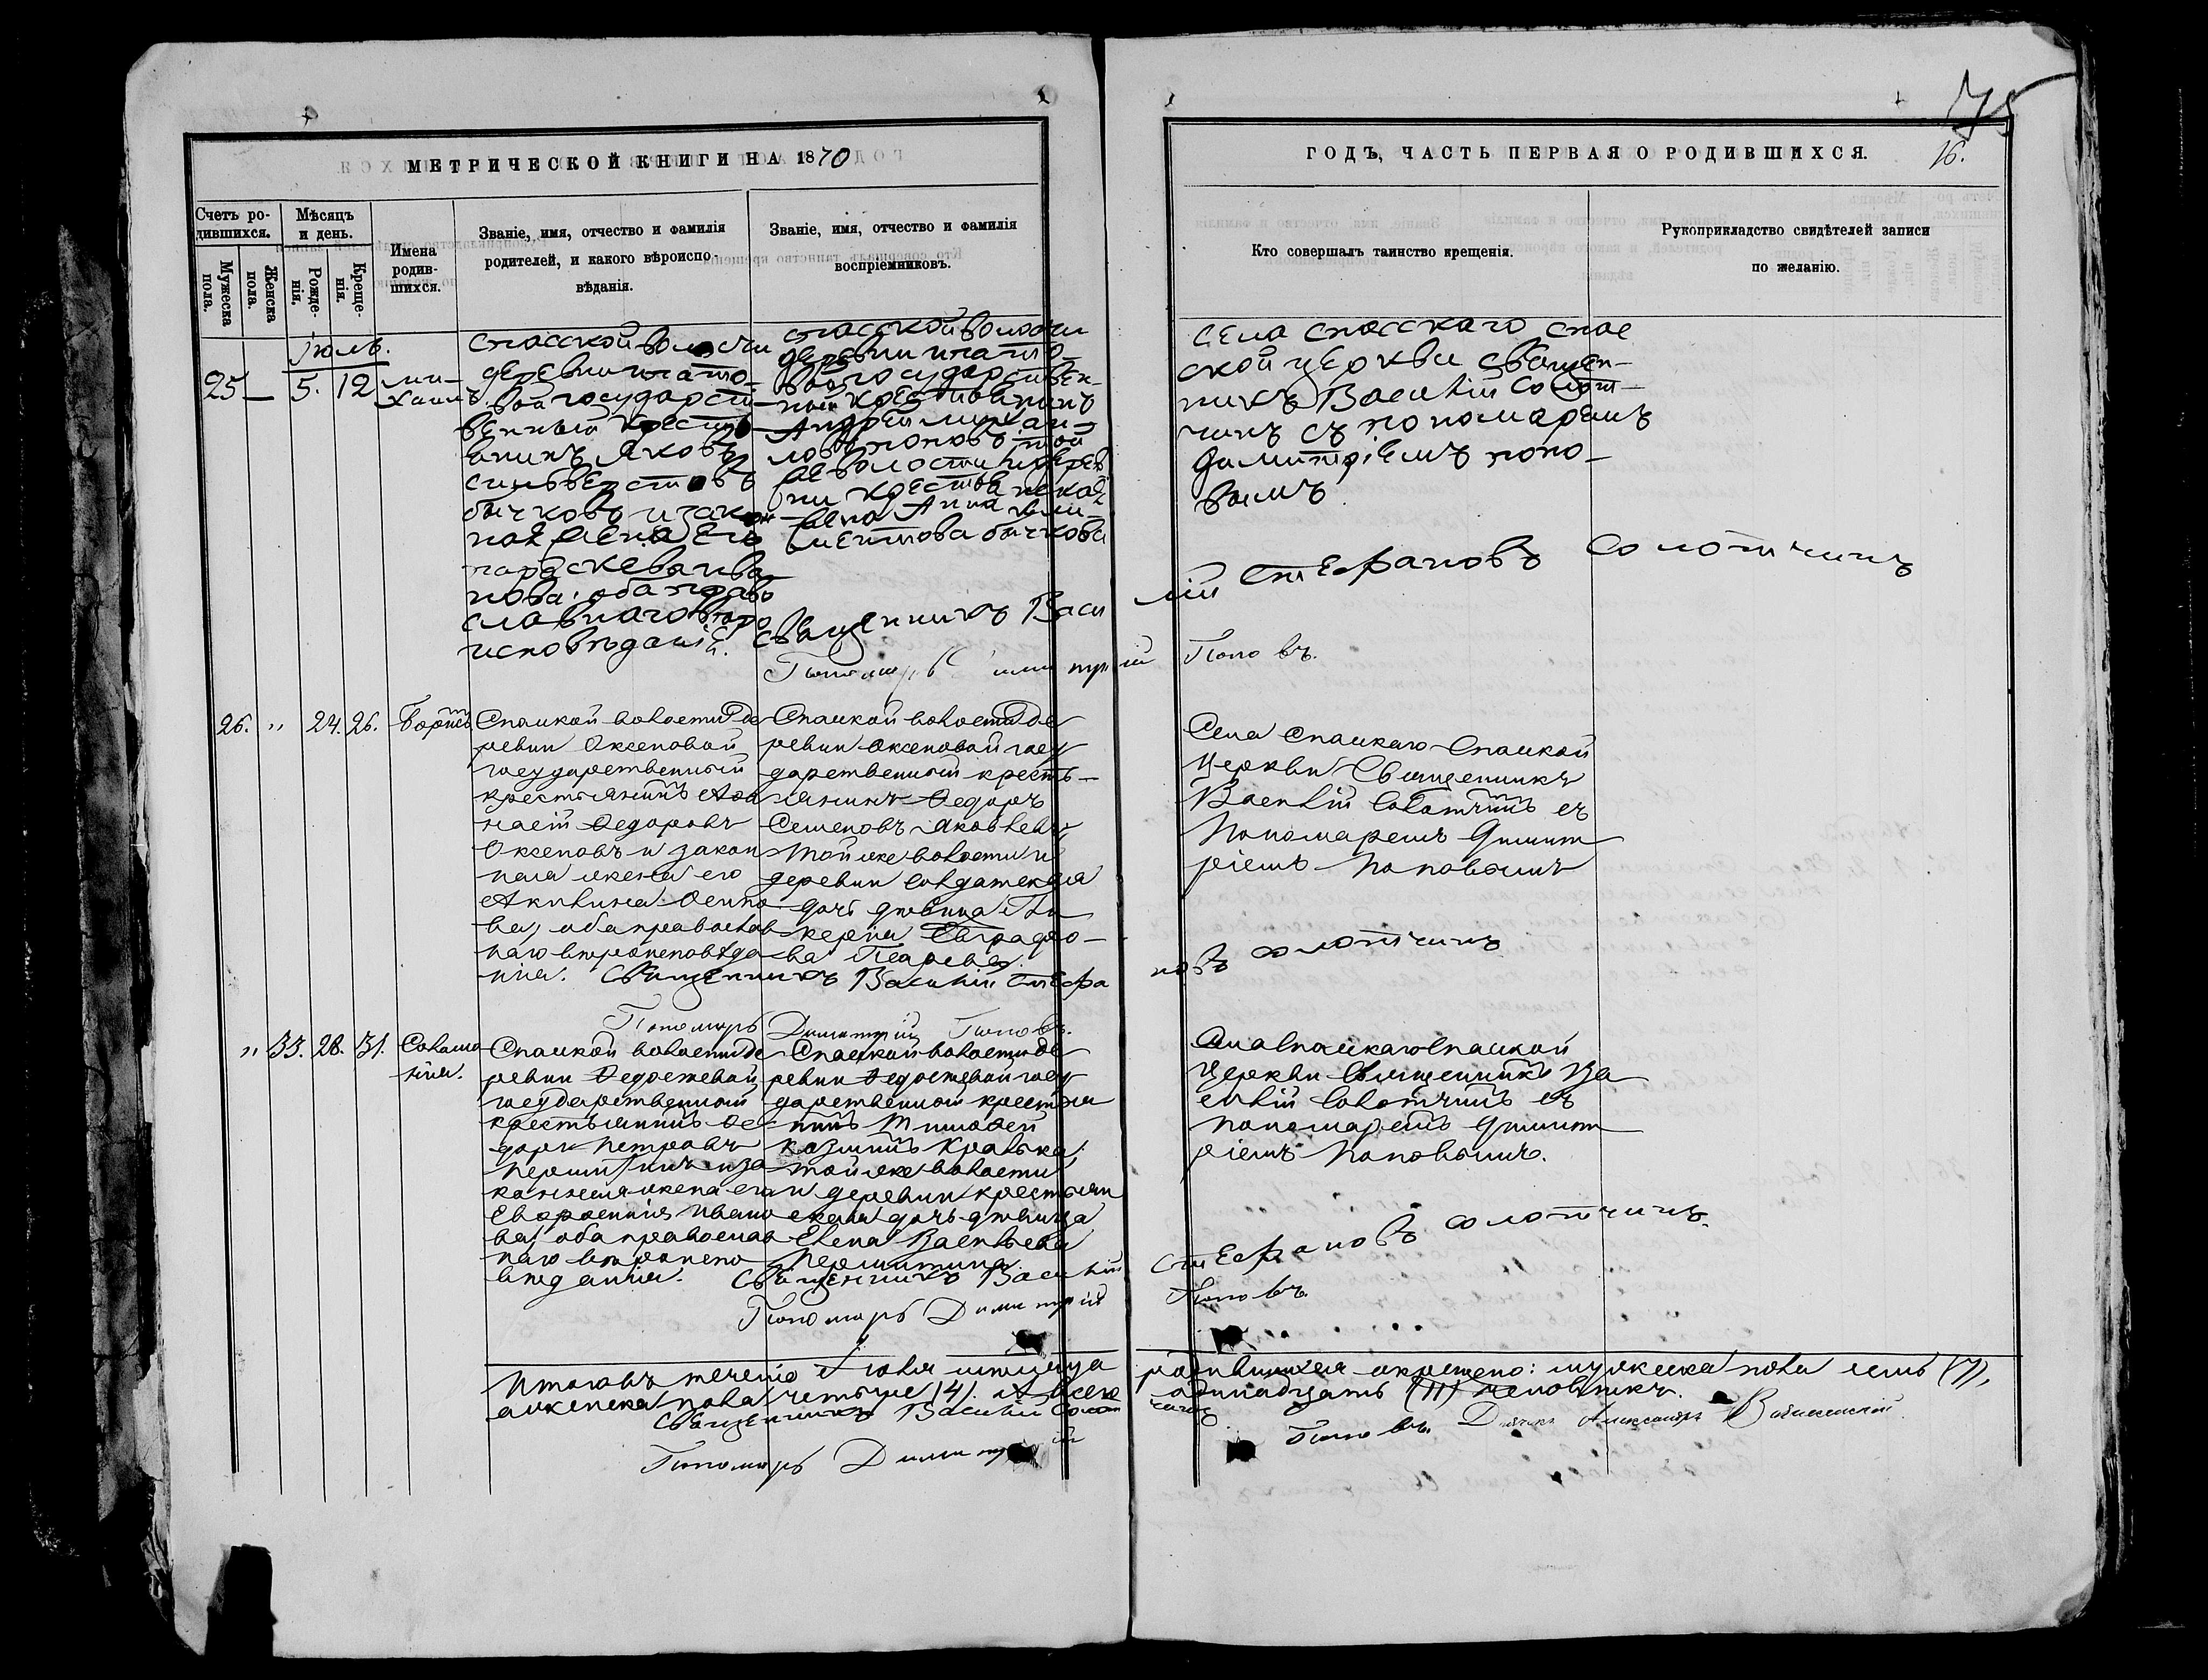 75
МЕТРИЧЕСКОЙ КНИГИ НА 1870
ГОДЪ, ЧАСТЬ ПЕРВАЯ О РОДИВШИХСЯ.
16.
Счетъ ро-
дившихся.
Мужеска
пола.
Женска
пола.
Мѣсяцъ
и день.
Рожде-
нія.
Креще-
нія.
Имена
родив-
шихся.
Званіе, имя, отчество и фамилія
родителей, и какого вѣроиспо-
вѣданія.
Званіе, имя, отчество и фамилія
воспріемниковъ.
Кто совершалъ таинство крещенія.
Рукоприкладство свидѣтелей записи
по желанію.
Іюль.
25 — 5. 12
ми-
хаилъ
спасской волости
деревни
вой государст
венный крестья
нинъ Яковъ
сильверстовъ
бычковъ и закон
ная жена его
параскева ива
нова, оба право
славнаго вѣро
исповѣданія.
спасской волости
деревни
вой государствен-
ный крестьянинъ
Андрей михаи-
ловъ поповъ той
же волости и дерев
ни крестьянская
жена Анна кли-
ментова бычкова
села спасскаго спас
ской церкви священ-
никъ Василій солот-
чинъ съ пономаремъ
димитріемъ попо-
вымъ
Священникъ Васи лій Стефановъ Солотчинъ
Пономарь Димитрій Поповъ.
26. " 24. 26. Борисъ
Спаской волости де
ревни Оксеновой
государственный
крестьянинъ Афа
насій Ѳедоровъ
Оксеновъ и закон
ная жена его
Акилина Осипо
ва, оба православ
наго вѣроисповѣда
нія.
Спаской волости де
ревни Оксеновой госу
дарственный кресть-
янинъ Ѳедоръ
Семеновъ Яковлевъ,
той же волости и
деревни солдатская
дочь дѣвица Гли
керія Евграфо-
ва
Села Спаскаго Спаской
церкви Священникъ
Василій Солотчинъ съ
пономаремъ Димит
ріемъ Поповымъ
Священникъ Василій Стефа новъ Солотчинъ
Пономарь Димитрій Поповъ.
" 33. 28. 31. Солома
нія.
Спаской волости де
ревни Ѳедосеевой
государственный
крестьянинъ Ѳе
доръ Петровъ
Першитинъ и за
конная жена его
Евфросинія Ивано
ва, оба православ
наго вѣроиспо
вѣданія.
Спаской волости де
ревни Ѳедосеевой госу
дарственный крестья
нинъ Тимоѳей
Козминъ
той же волости
и деревни крестьян
ская дочь дѣвица
Елена Васильева
Першитина
Села Спаскаго Спаской
церкви Священникъ Ва
силій Солотчинъ съ
пономаремъ Димит
ріемъ Поповымъ.
Священникъ Василій Стефановъ Солотчинъ.
Пономарь Димитрій Поповъ.
Итого въ теченіе Іюля мѣсяца родившихся и крещено: мужеска пола семь (7),
а женска пола четыре (4). А всего одинадцать (11) человѣкъ.
Священникъ Василій Солотчинъ
Пономарь Димитрій Поповъ. Дьячекъ Александръ